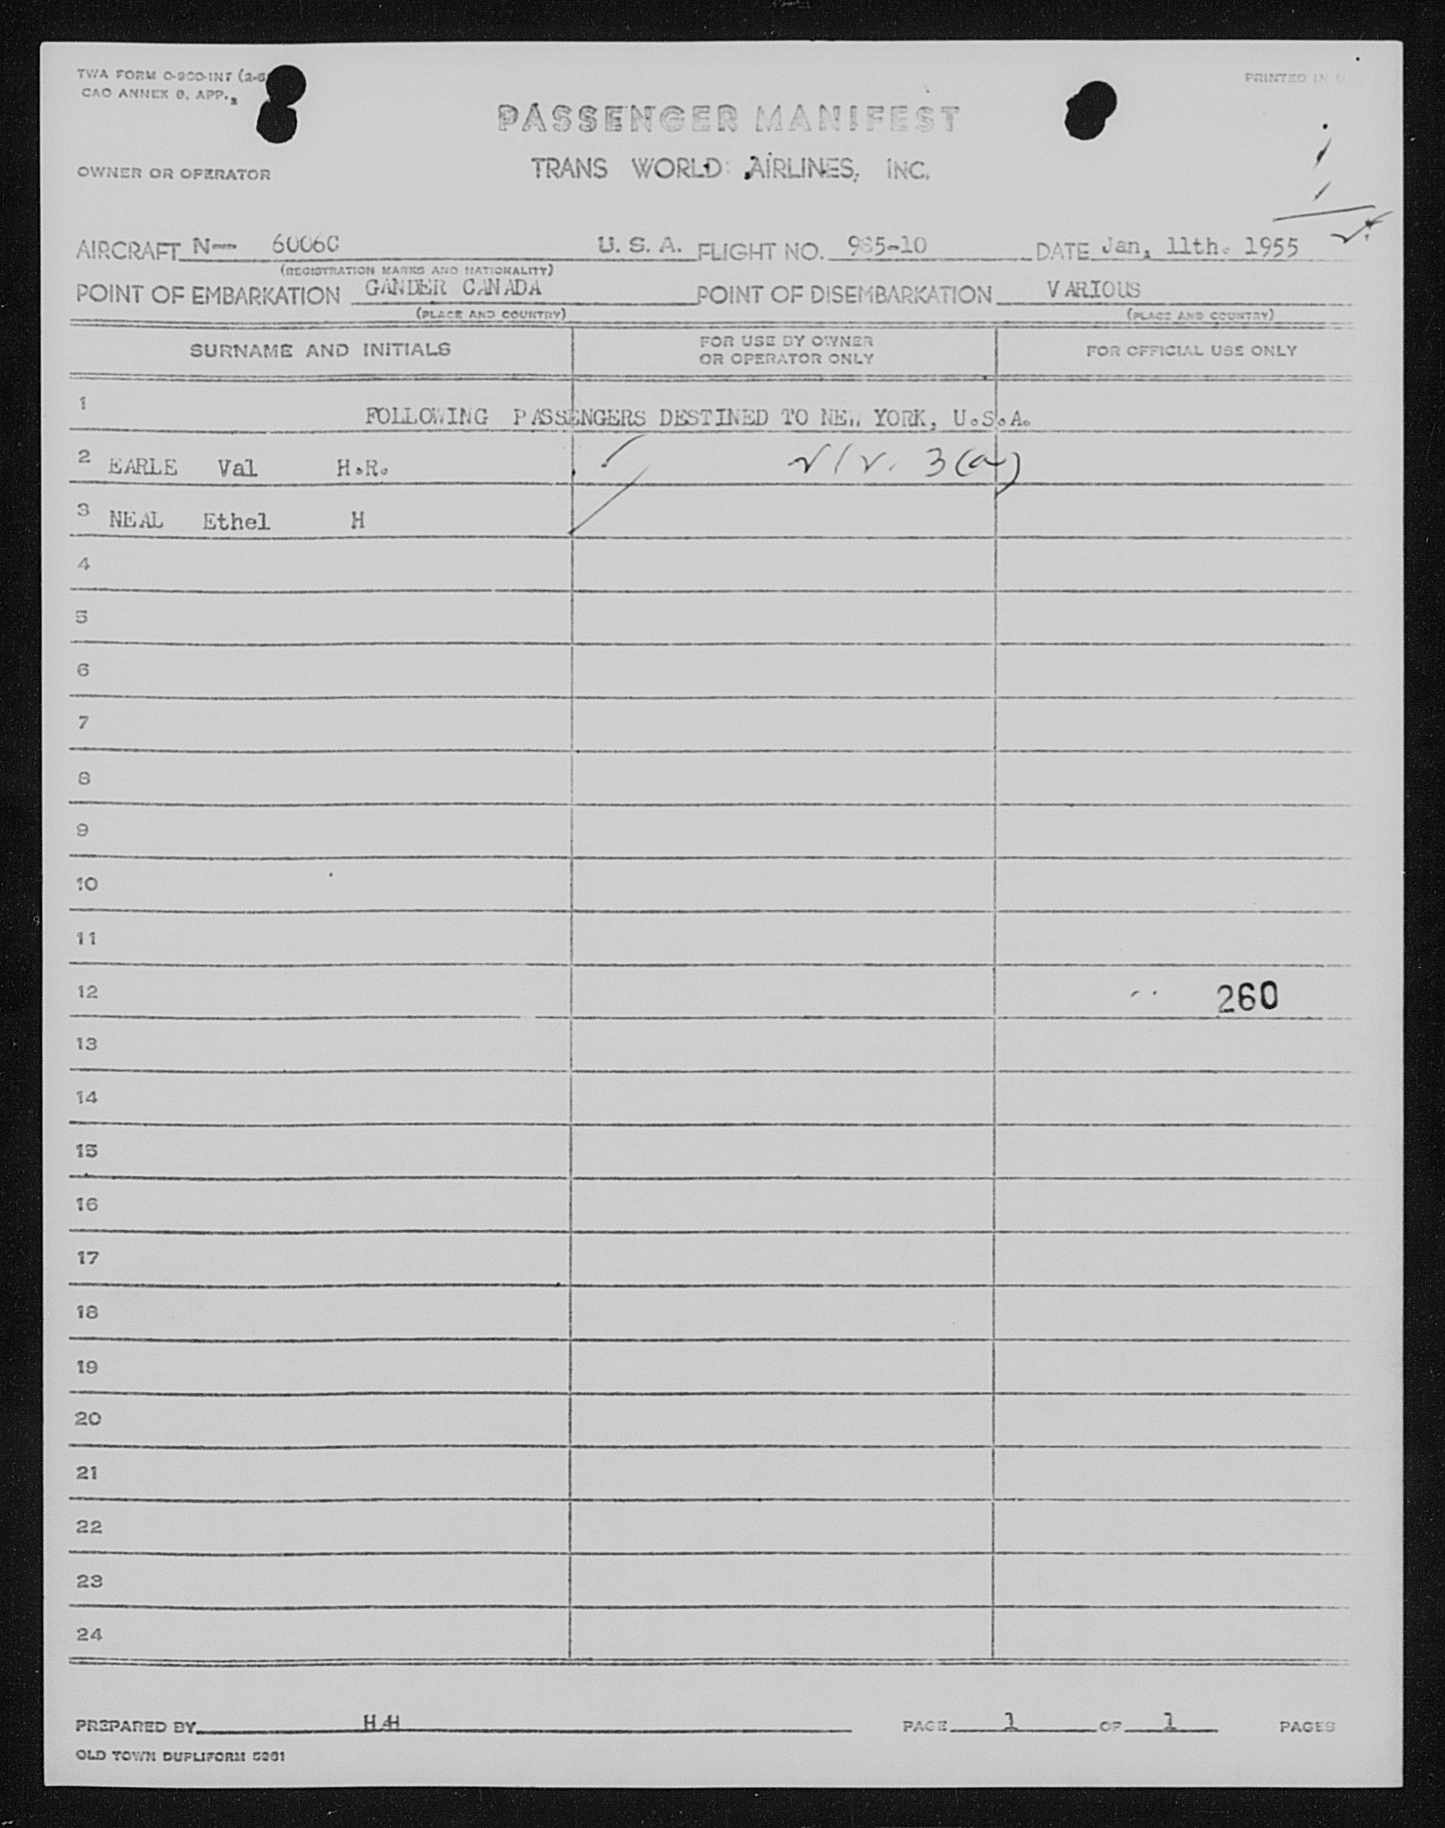 TWA FORM O-900-INT (2-5
PRINTED IN U
CAO ANNEX 9, APP. 3
PASSENGER MANIFEST
OWNER OR OPERATOR
TRANS WORLD AIRLINES, INC.
AIRCRAFT N-- 6006C U. S. A. FLIGHT NO. 965-10 DATE Jan, 11th. 1955
(REGISTRATION MARKS AND NATIONALITY)
POINT OF EMBARKATION GANDER CANADA POINT OF DISEMBARKATION VARIOUS
(PLACE AND COUNTRY) (PLACE AND COUNTRY)
SURNAME AND INITIALS FOR USE BY OWNER OR OPERATOR ONLY FOR OFFICIAL USE ONLY
1 FOLLOWING PASSENGERS DESTINED TO NEW YORK, U.S.A.
2 EARLE Val H.R. 3(a)
3 NEAL Ethel H
4
5
6
7
8
9
10
11
12 260
13
14
15
16
17
18
19
20
21
22
23
24
PREPARED BY HH PAGE 1 OF 1 PAGES
OLD TOWN DUPLIFORM 5261